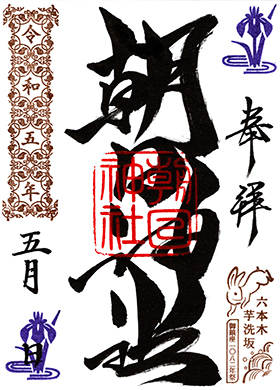 奉拝
六本木
芋洗坂
御鎮座一〇八二年祭
朝日神社
朝日神社
令和五年
五月 日